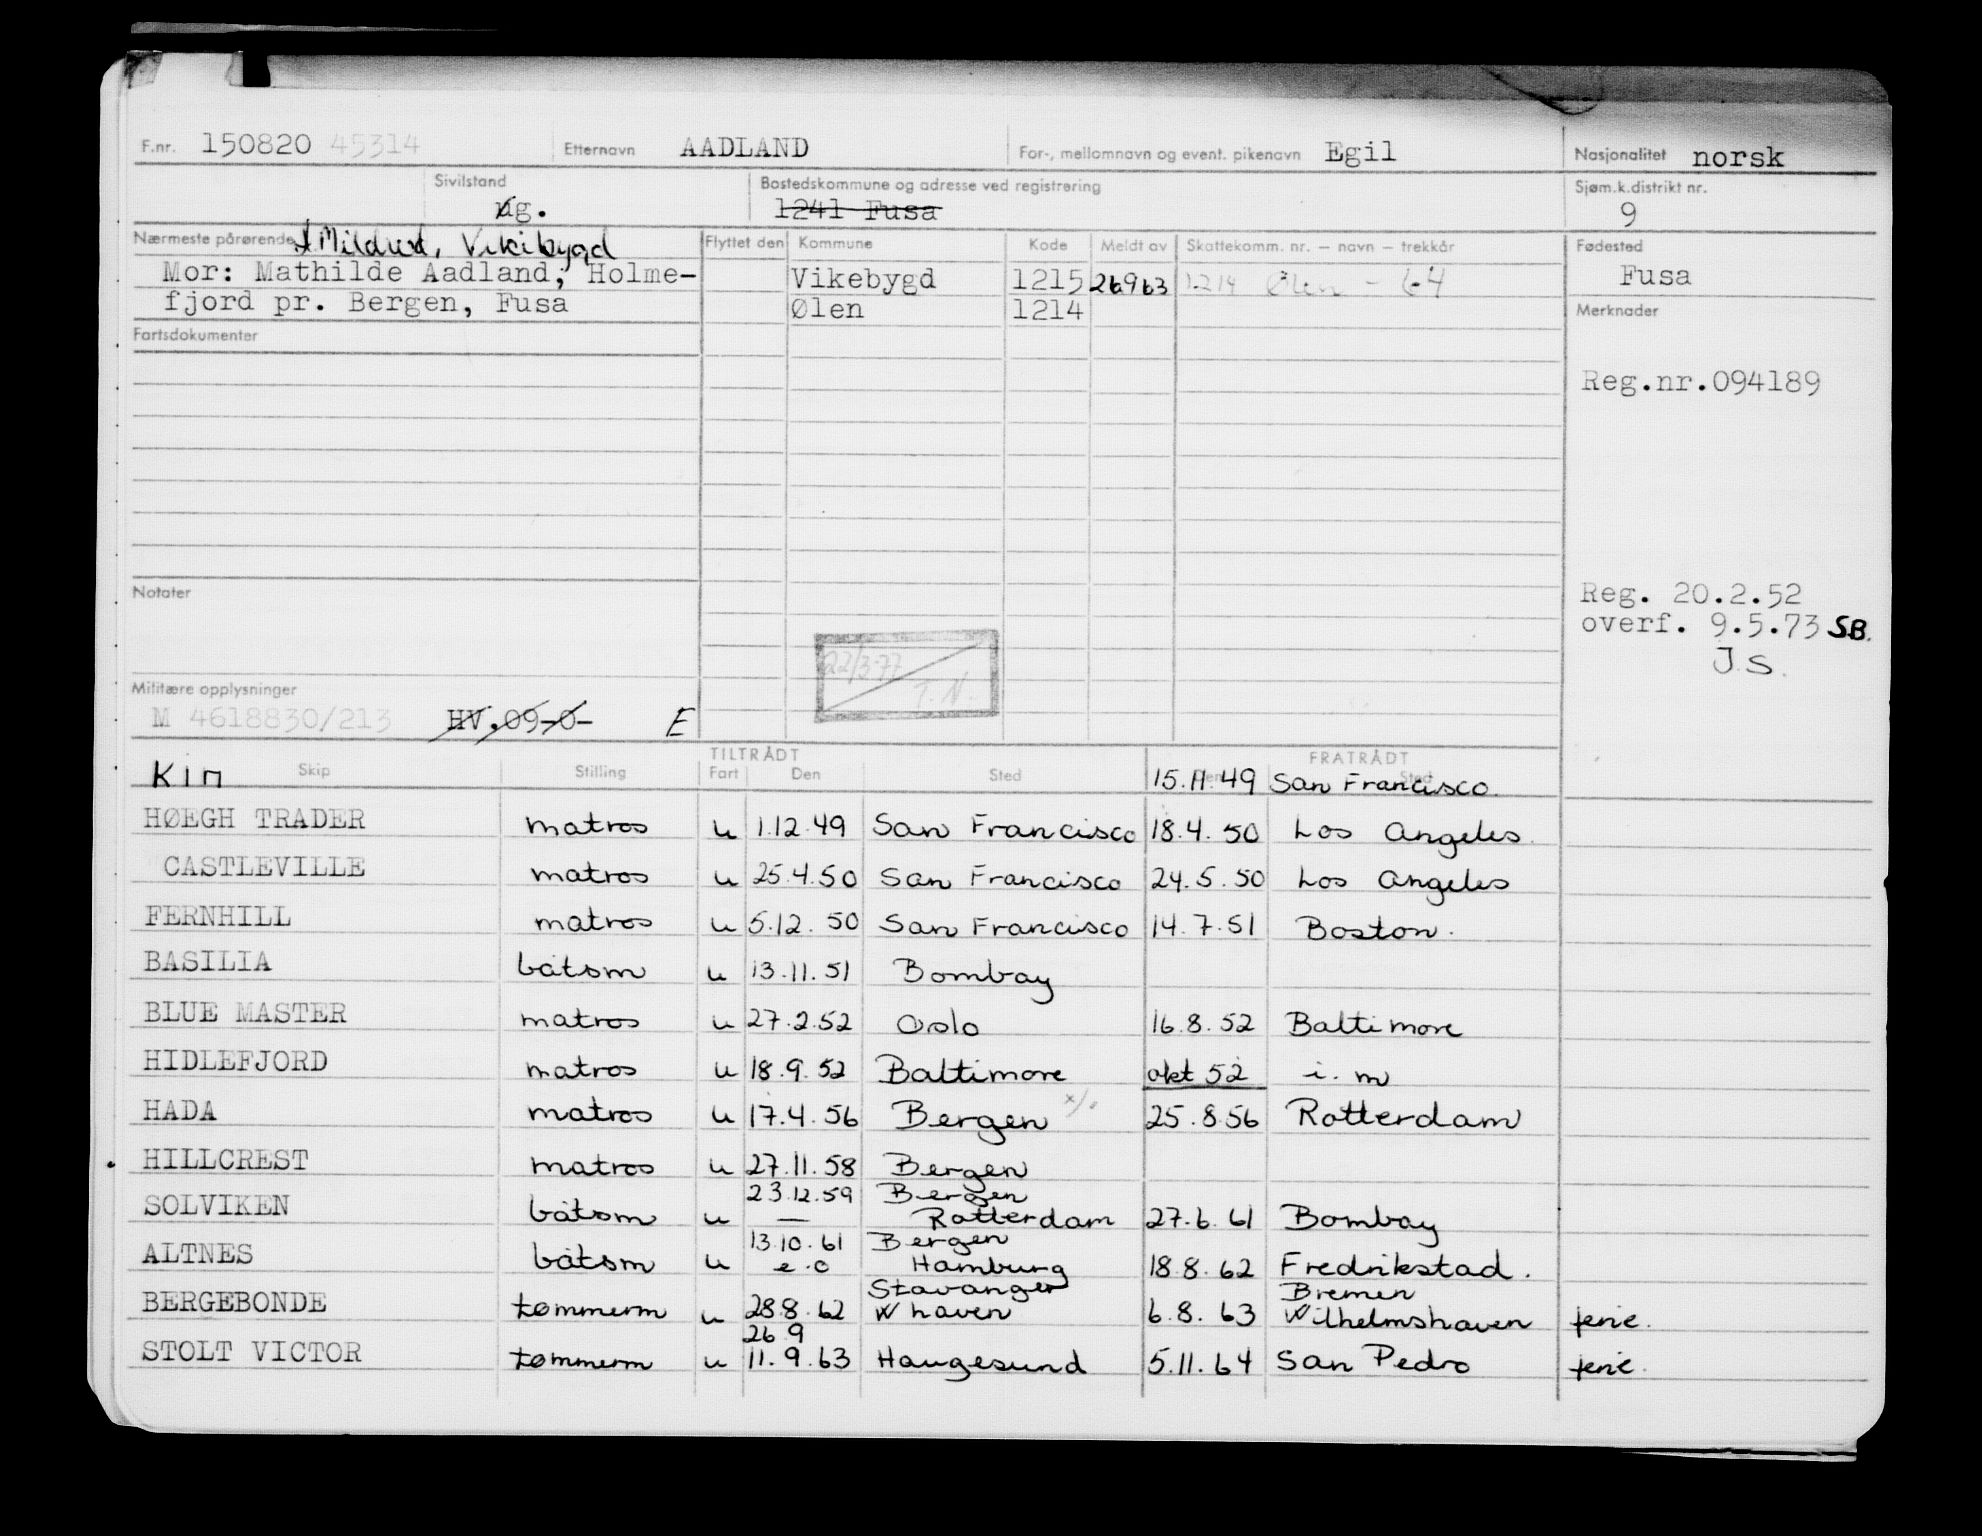 F.nr. 150820 45314 Etternavn AADLAND For-, mellomnavn og event. pikenavn Egil Nasjonalitet norsk
Sivilstand Bostedskommune og adresse ved registrering Sjøm.k.distrikt nr.
ug. 1241 Fusa 9
Nærmeste pårørende Mildrid, Vikibygd Flyttet den Kommune Kode Meldt av Skattekomm. nr. – navn – trekkår Fødested
Mor: Mathilde Aadland, Holme- Vikebygd 1215 26963 1214 Ølen - 64 Fusa
fjord pr. Bergen, Fusa Ølen 1214 Merknader
Fartsdokumenter
Reg.nr.094189
Notater
Reg. 20.2.52
overf. 9.5.73 SB.
J.S.
22/3-77
T.N.
Militære opplysninger
M 4618830/213 HV.09-0- E
TILTRÅDT FRATRÅDT
Skip Stilling Fart Den Sted Den Sted
Kim 15.11.49 San Francisco.
HØEGH TRADER matros u 1.12.49 San Francisco 18.4.50 Los Angeles.
CASTLEVILLE matros u 25.4.50 San Francisco 24.5.50 Los Angeles
FERNHILL matros u 5.12.50 San Francisco 14.7.51 Boston.
BASILIA båtsm u 13.11.51 Bombay
BLUE MASTER matros u 27.2.52 Oslo 16.8.52 Baltimore
HIDLEFJORD matros u 18.9.52 Baltimore okt 52 i.m
HADA matros u 17.4.56 Bergen x/. 25.8.56 Rotterdam
HILLCREST matros u 27.11.58 Bergen
23.12.59 Bergen
SOLVIKEN båtsm u — Rotterdam 27.6.61 Bombay
13.10.61 Bergen
ALTNES båtsm u e.o Hamburg 18.8.62 Fredrikstad.
Stavanger Bremen
BERGEBONDE tømmerm u 28.8.62 W haven 6.8.63 Wilhelmshaven ferie.
26 9
STOLT VICTOR tømmerm u 11.9.63 Haugesund 5.11.64 San Pedro ferie.